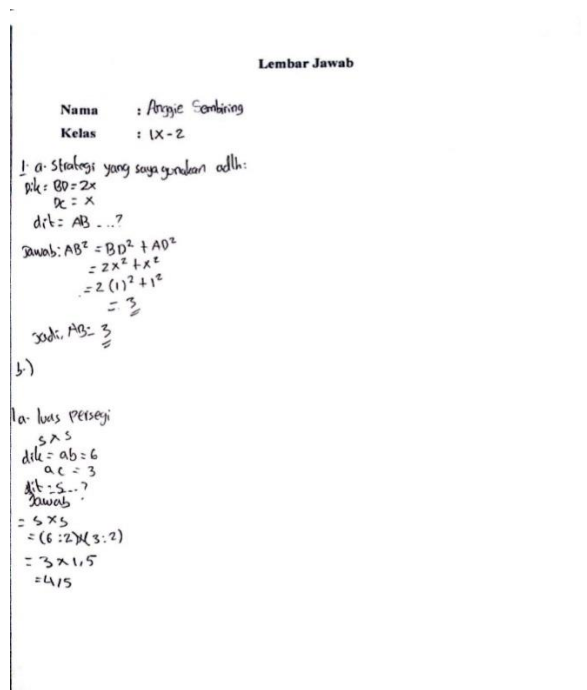 Lembar Jawab
Nama : Anggie Sembiring
Kelas : IX-2
1. a. Strategi yang saya gunakan adlh:
Dik = BD = 2x
DC = x
dit = AB ...?
Jawab: AB² = BD² + AD²
= 2x² + x²
= 2 (1)² + 1²
= 3
Jadi, AB = 3
b.)
1a. luas persegi
s x s
dik = ab = 6
ac = 3
dit = s...?
Jawab :
= s x s
= (6 : 2) x (3 : 2)
= 3 x 1,5
= 4,5